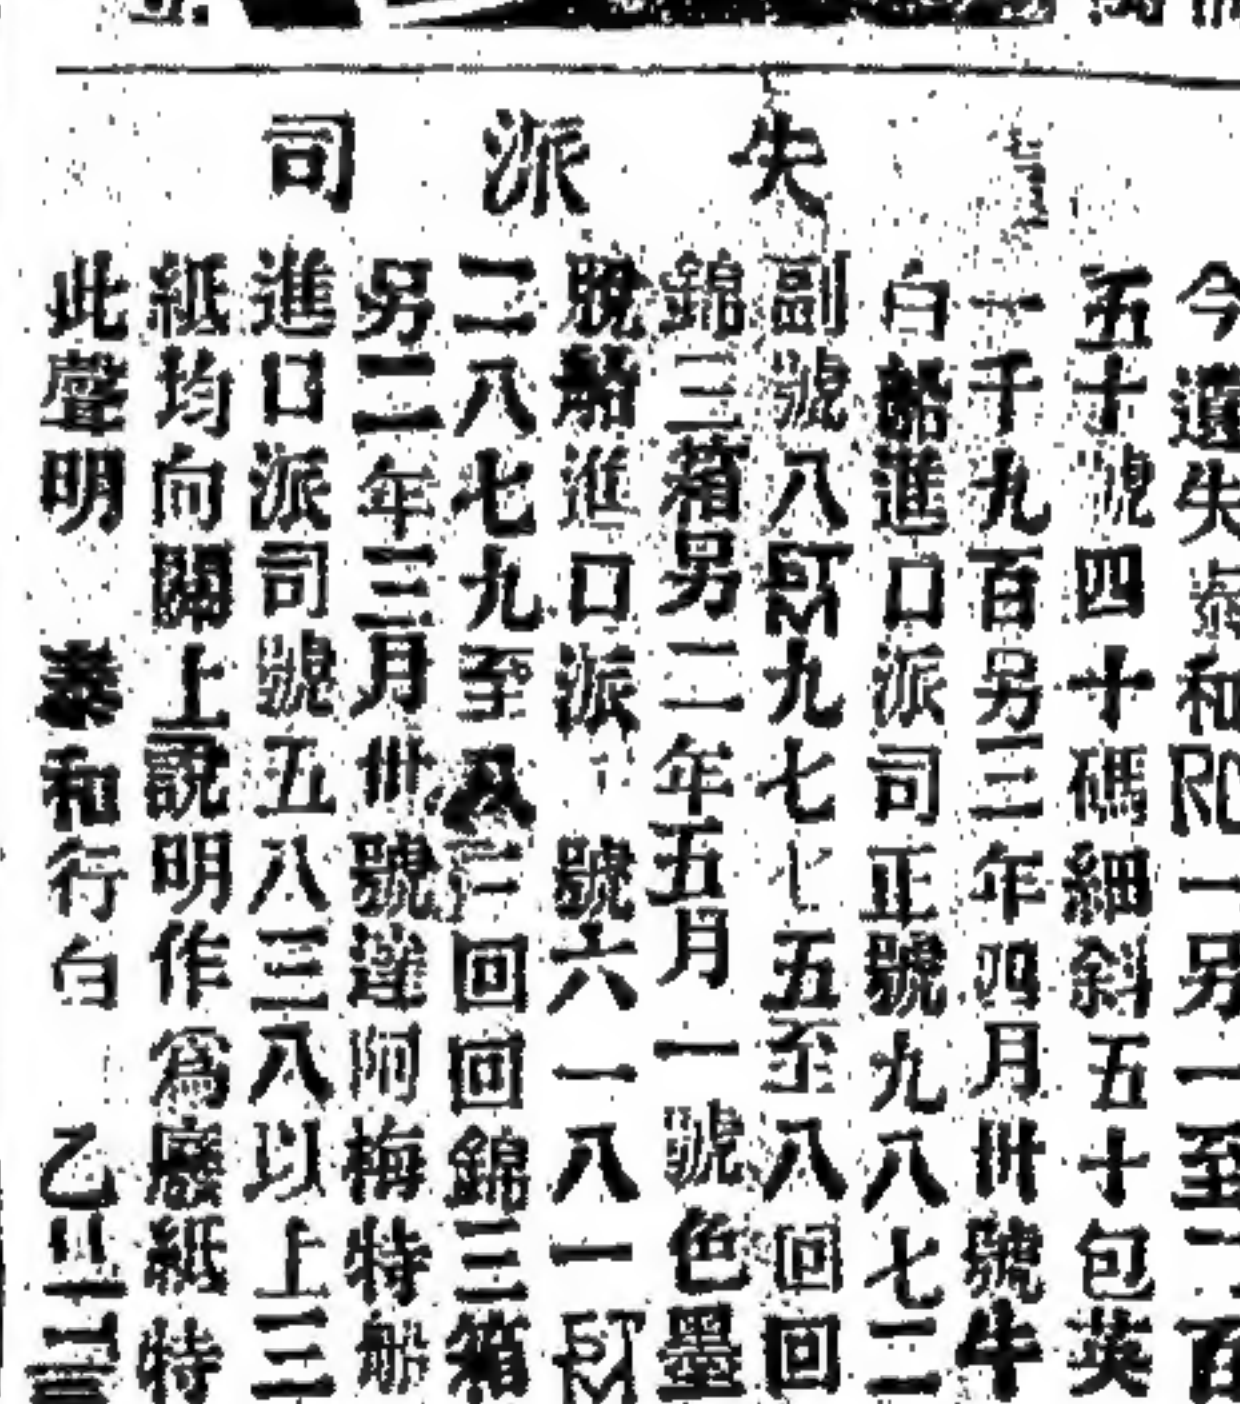 失派司
今遺失泰和RC一另一至二百
五十號四十碼細斜五十包英
一千九百另三年四月卅號牛
白船進口派司正號九八七二
副號八EM九七七五至八回回
錦三箱另二年五月一號色墨
脫船進口派 號六一八一EM
二八七九至及三回回錦三箱
另二年三月卅號達阿梅特船
進口派司號五八三八以上三
紙均向關上說明作為廢紙特
此聲明 泰和行白